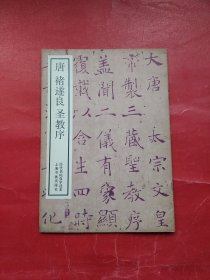 大唐太宗文皇
帝製三藏聖教序
盖聞二儀有象顯
覆載以含生四時
化
唐 褚遂良 圣教序